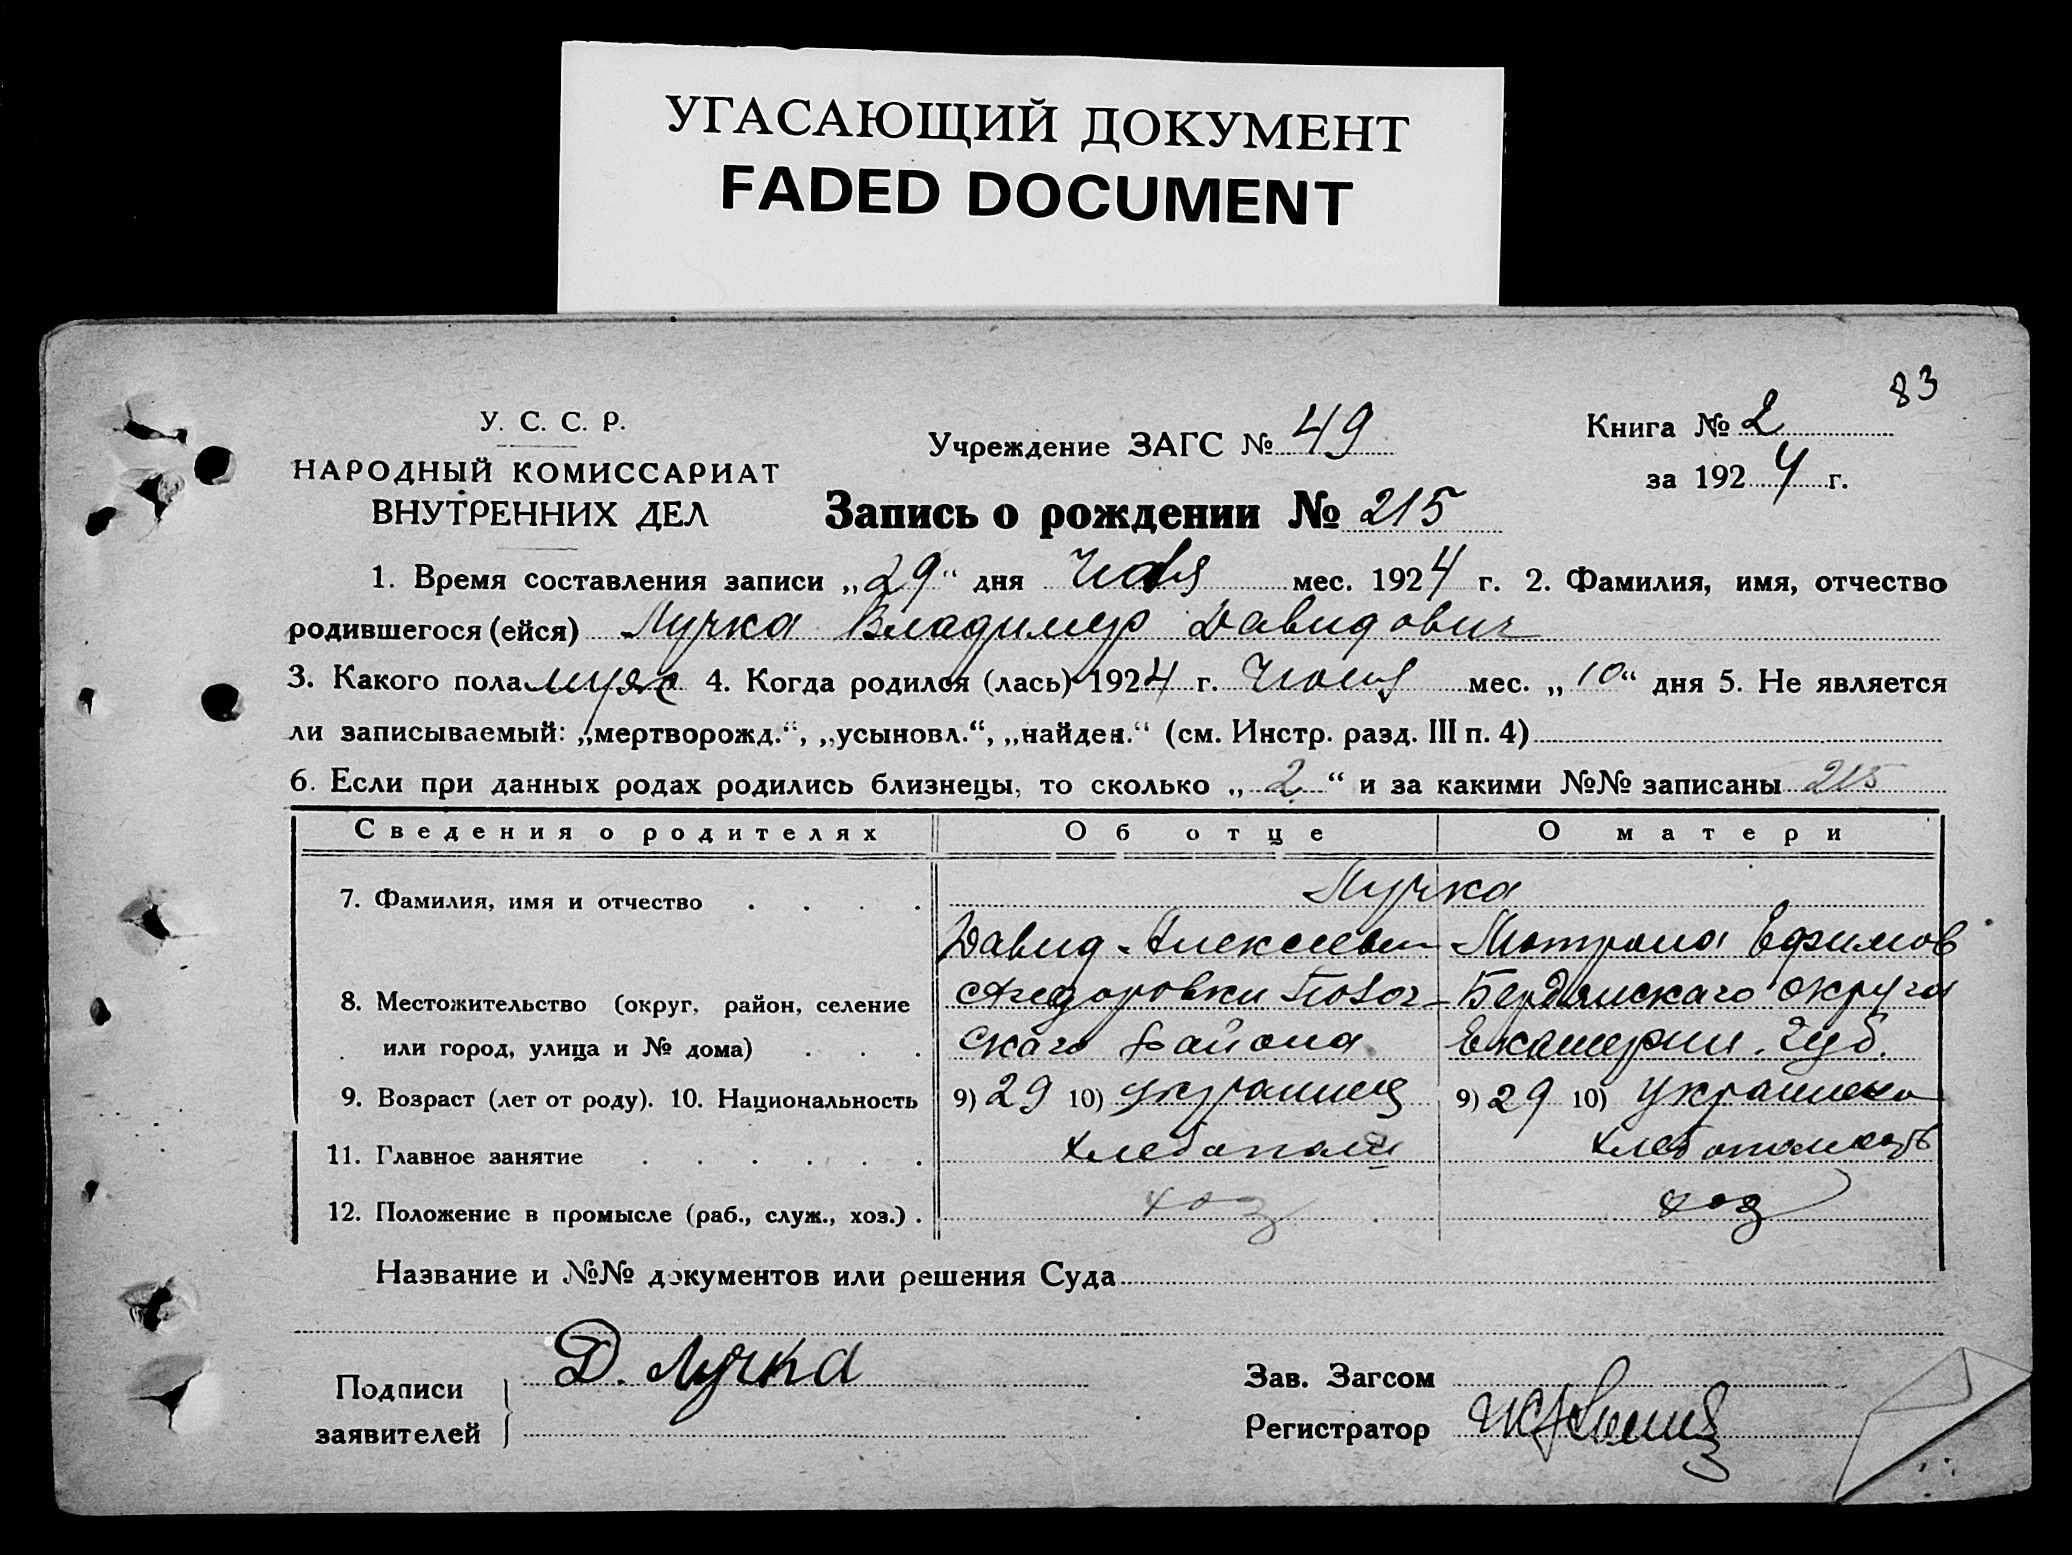 УГАСАЮЩИЙ ДОКУМЕНТ
FADED DOCUMENT
83
У. С. С. Р.
НАРОДНЫЙ КОМИССАРИАТ
ВНУТРЕННИХ ДЕЛ
Учреждение ЗАГС № 49
Книга № 2
за 1924 г.
Запись о рождении № 215
1. Время составления записи „29“ дня мес. 1924 г. 2. Фамилия, имя, отчество
родившегося (ейся) Лучка Владимир Давидович
3. Какого пола муж 4. Когда родился (лась) 1924 г. Июня мес. „10“ дня 5. Не является
ли записываемый: „мертворожд.“, „усыновл.“, „найден.“ (см. Инстр. разд. III п. 4)
6. Если при данных родах родились близнецы, то сколько „2“ и за какими №№ записаны 215
Сведения о родителях Об отце О матери
7. Фамилия, имя и отчество Лучка
Давид Алексеевич Мотрона Ефимов
8. Местожительство (округ, район, селение Бердянскаго округа
или город, улица и № дома) скаго района Екатерин. Губ.
9. Возраст (лет от роду). 10. Национальность 9) 29 10) украинец 9) 29 10) украинка
11. Главное занятие
12. Положение в промысле (раб., служ., хоз.) хоз хоз
Название и №№ документов или решения Суда
Подписи
заявителей
Д. Лучка
Зав. Загсом
Регистратор